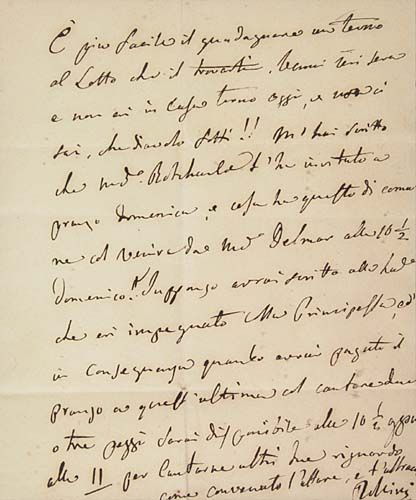 È più facile il guadagnare un terno
al Lotto che il trovarti. Venni ieri sera
e non eri in casa torno oggi, e non ci
sei, che diavolo fotti!! M'hai scritto
che Mde. Rotchild t'ha invitato a
pranzo domenica, e cosa ha questo di comu
ne col venire da Mde Delmar alle 10 1/2
domenica? Suppongo avrai scritto alla
che eri impegnato alla Principessa, ed
in conseguenza quando avrai pagato il
pranzo a quest'ultima col cantare due
o tre pezzi sarai disponibile alle 10 1/2 oppure
alle 11 per cantarne altri due riguardo
come convenuto l'affare, e